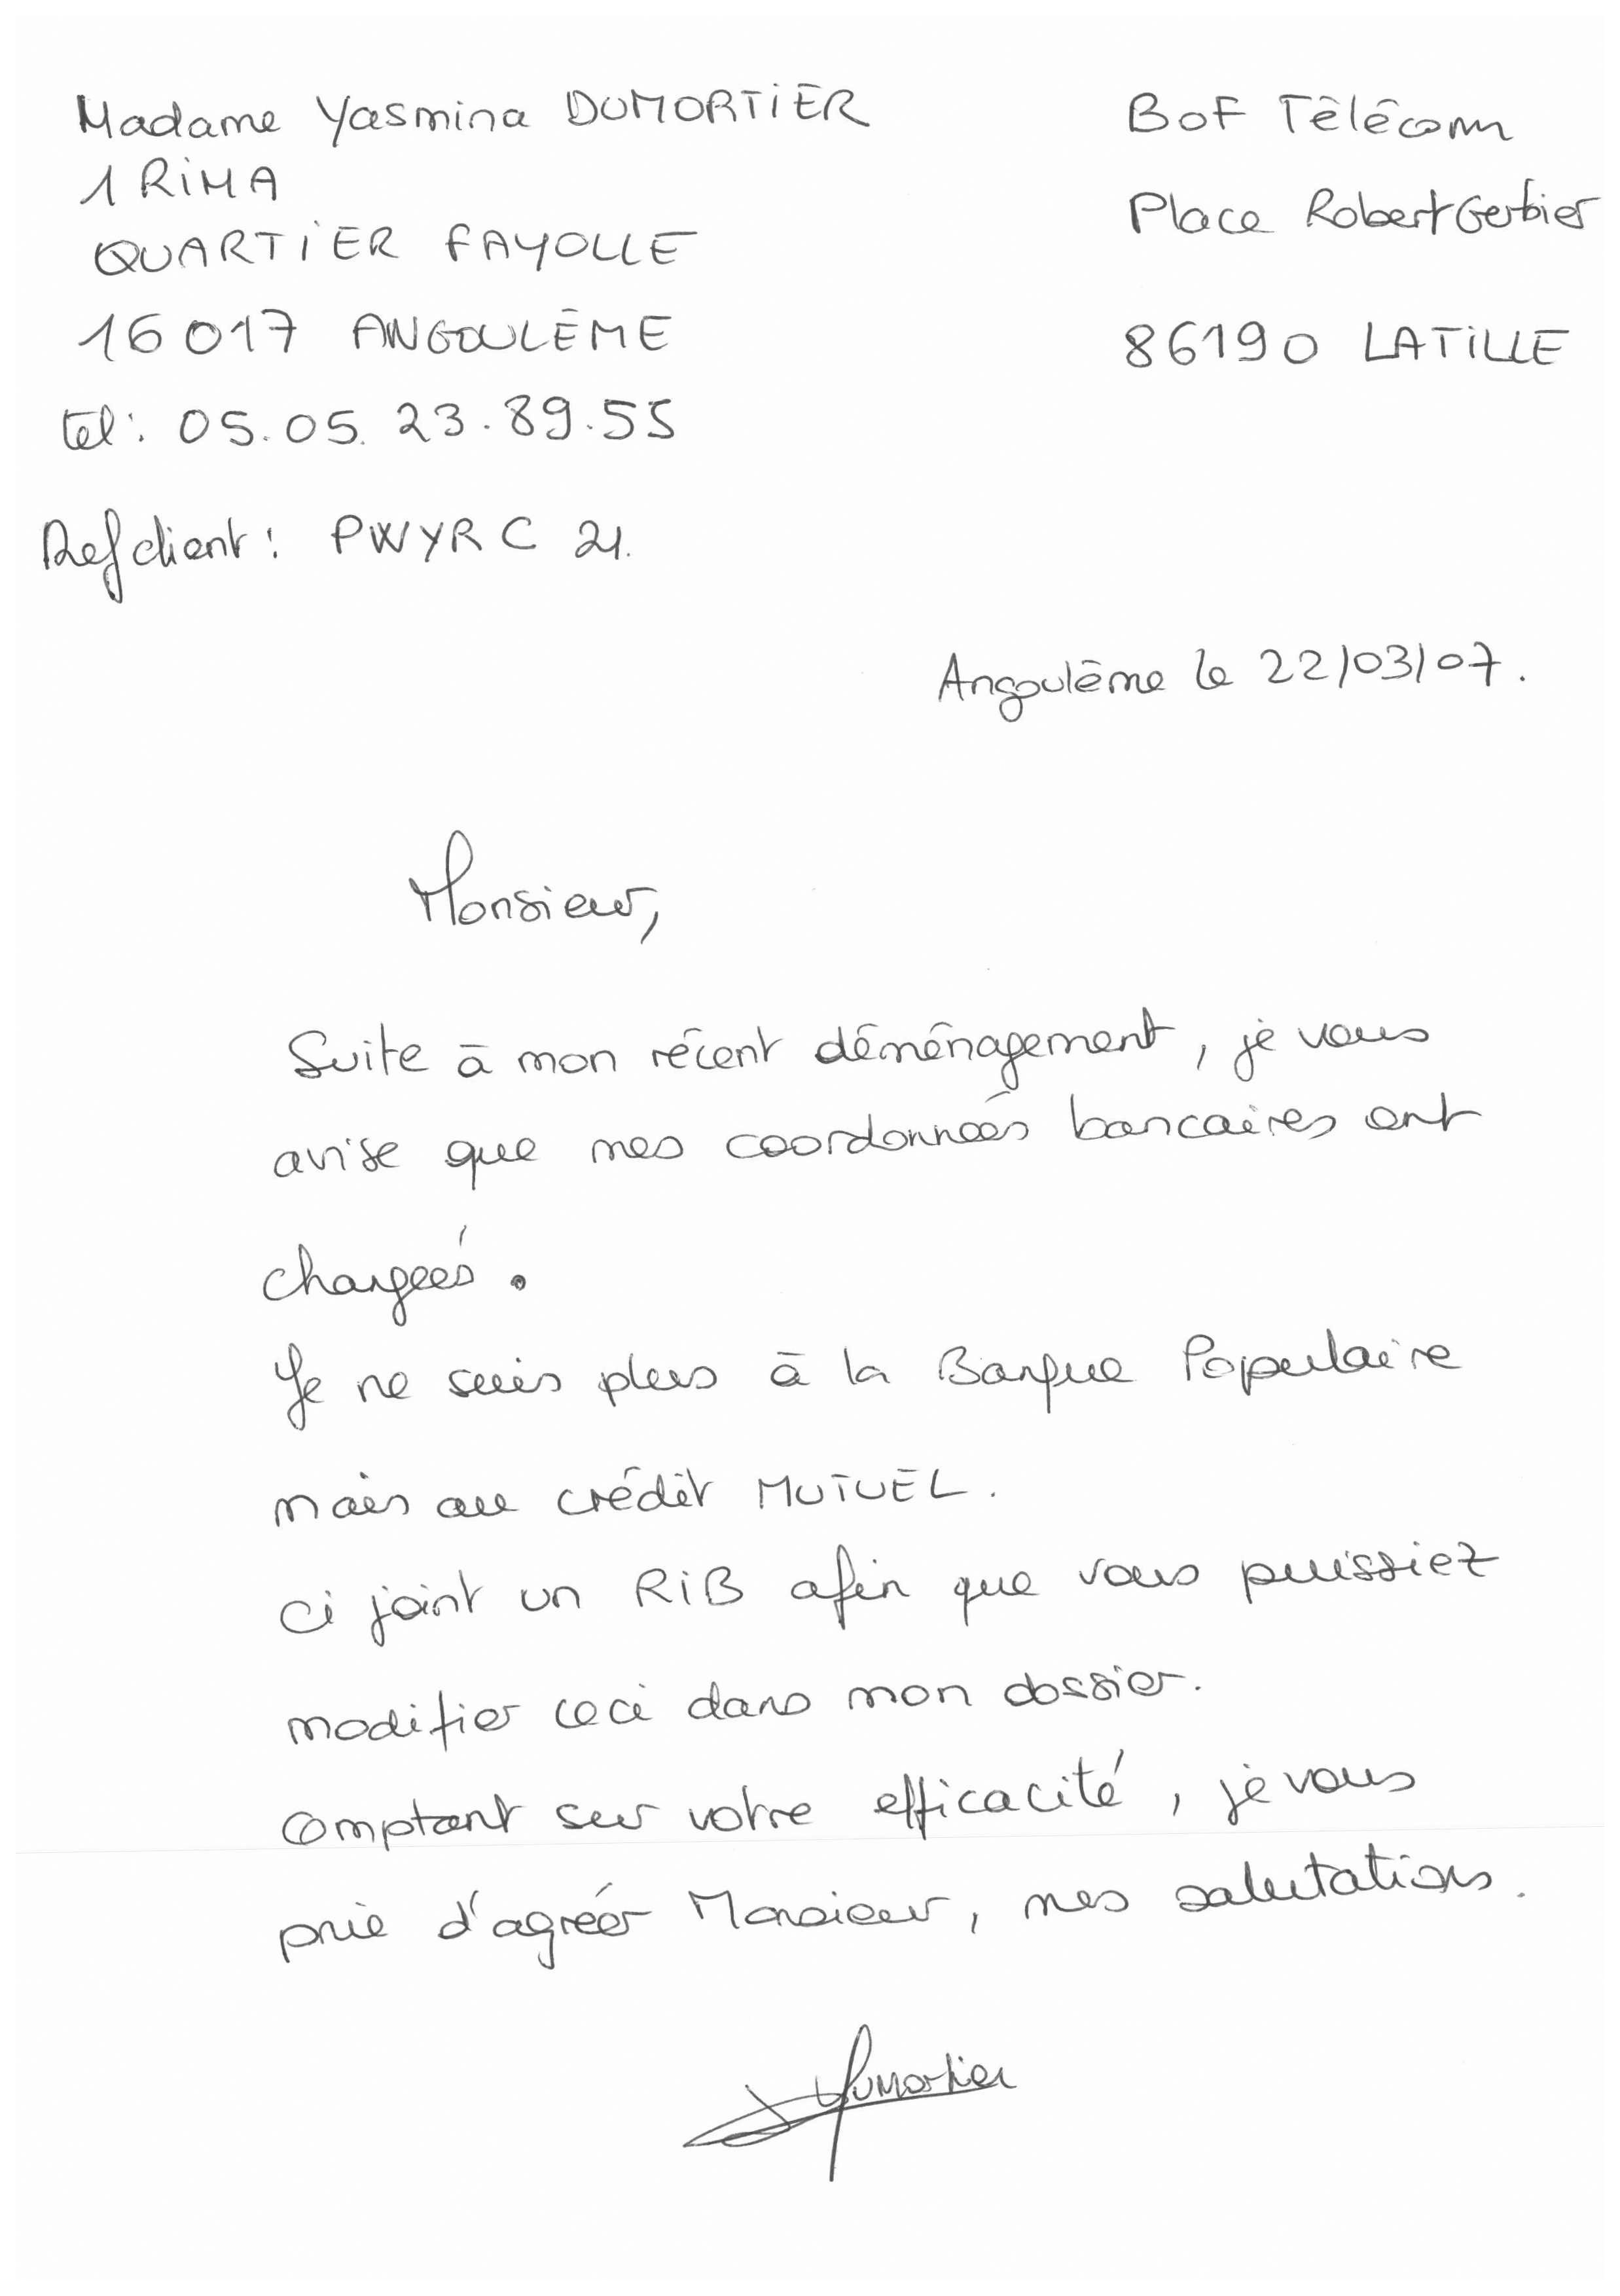 Madame Yasmina DUMORTIER
1 RIMA
QUARTIER FAYOLLE
16017 ANGOULÊME
tel: 05.05.23.89.55
Ref client: PWYRC 21.
BOF Télécom
Place Robert Gerbier
86190 LATILLE
Angoulême le 22/03/07.
Monsieur,
Suite à mon récent déménagement, je vous
avise que mes coordonnées bancaires ont
changées.
Je ne suis plus à la Banque Populaire
mais au crédit MUTUEL.
ci joint un RIB afin que vous puissiez
modifier ceci dans mon dossier.
comptant sur votre efficacité, je vous
prie d'agréer Monsieur, mes salutations.
Dumortier